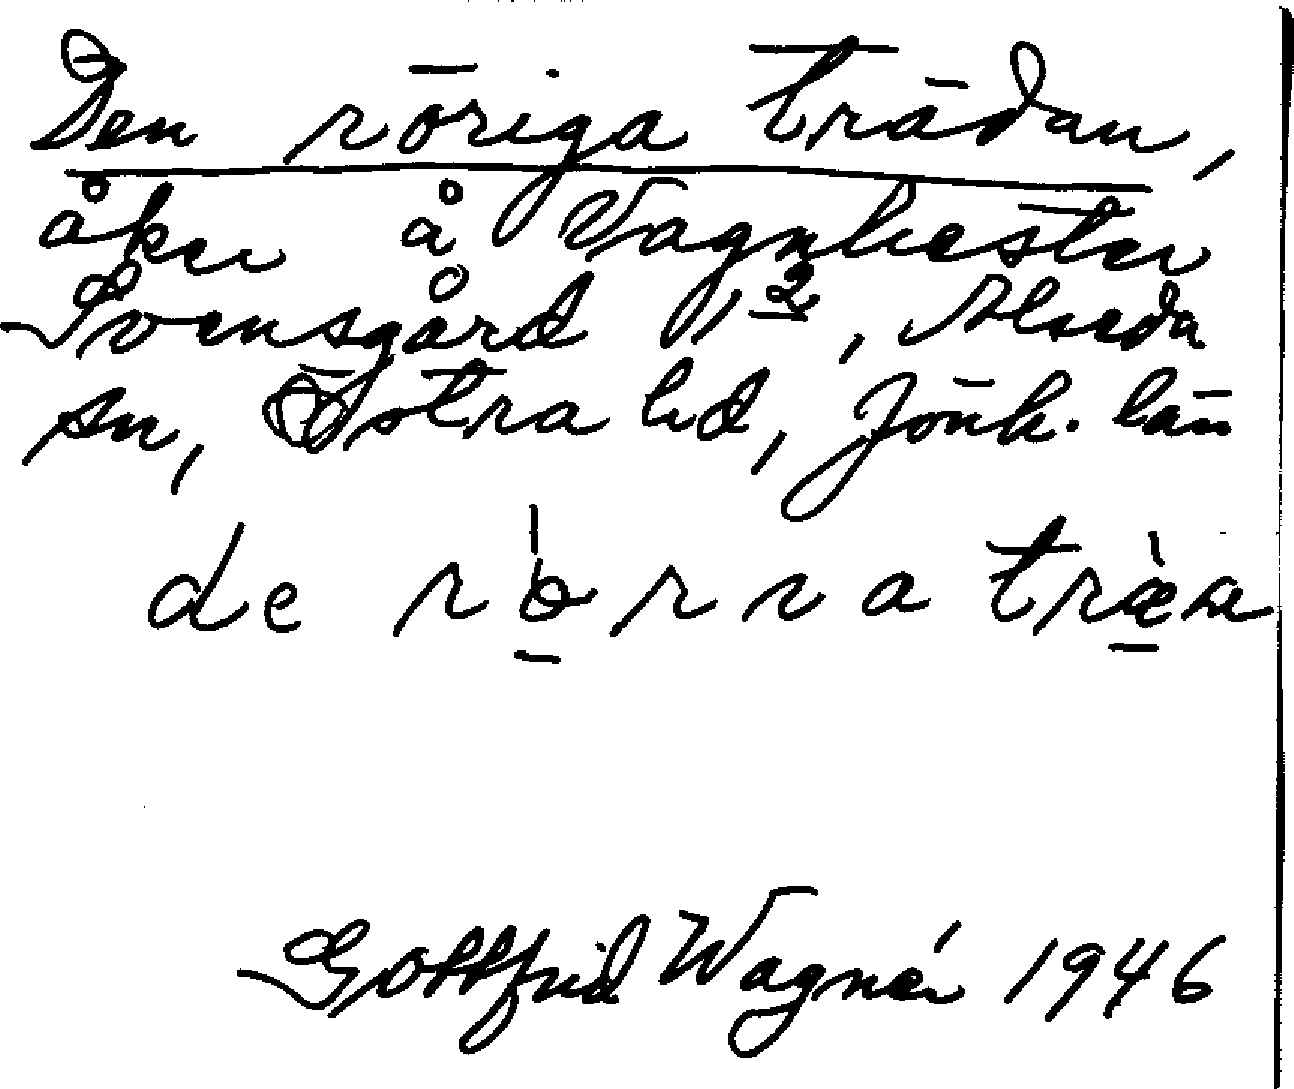 Den röriga trädan,
åker å Vagnhester
Svensgård 1/2, Alseda
sn, Östra hd, Jönk. län
de rörra träa
Gottfrid Wagnér 1946